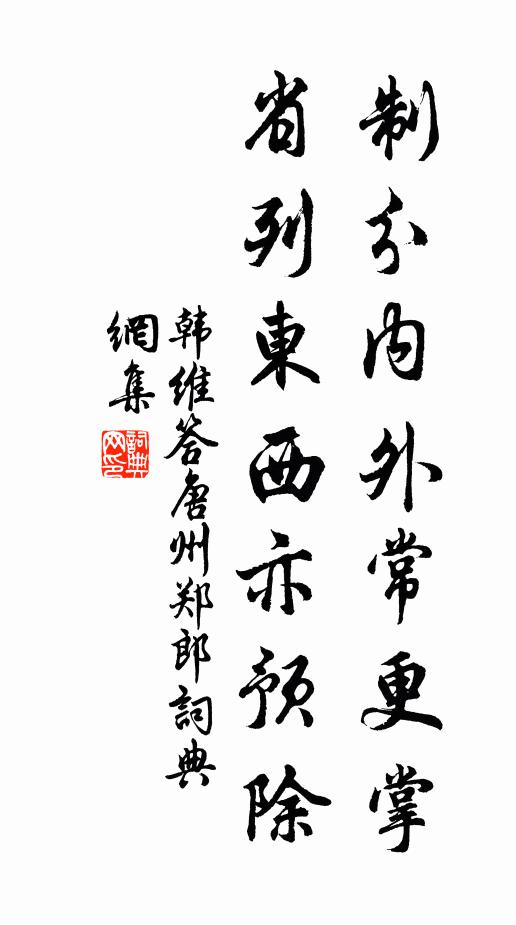 制分内外常更掌
省列東西亦预除
韩维答唐州郑郎詞典
網集
詞典
网印